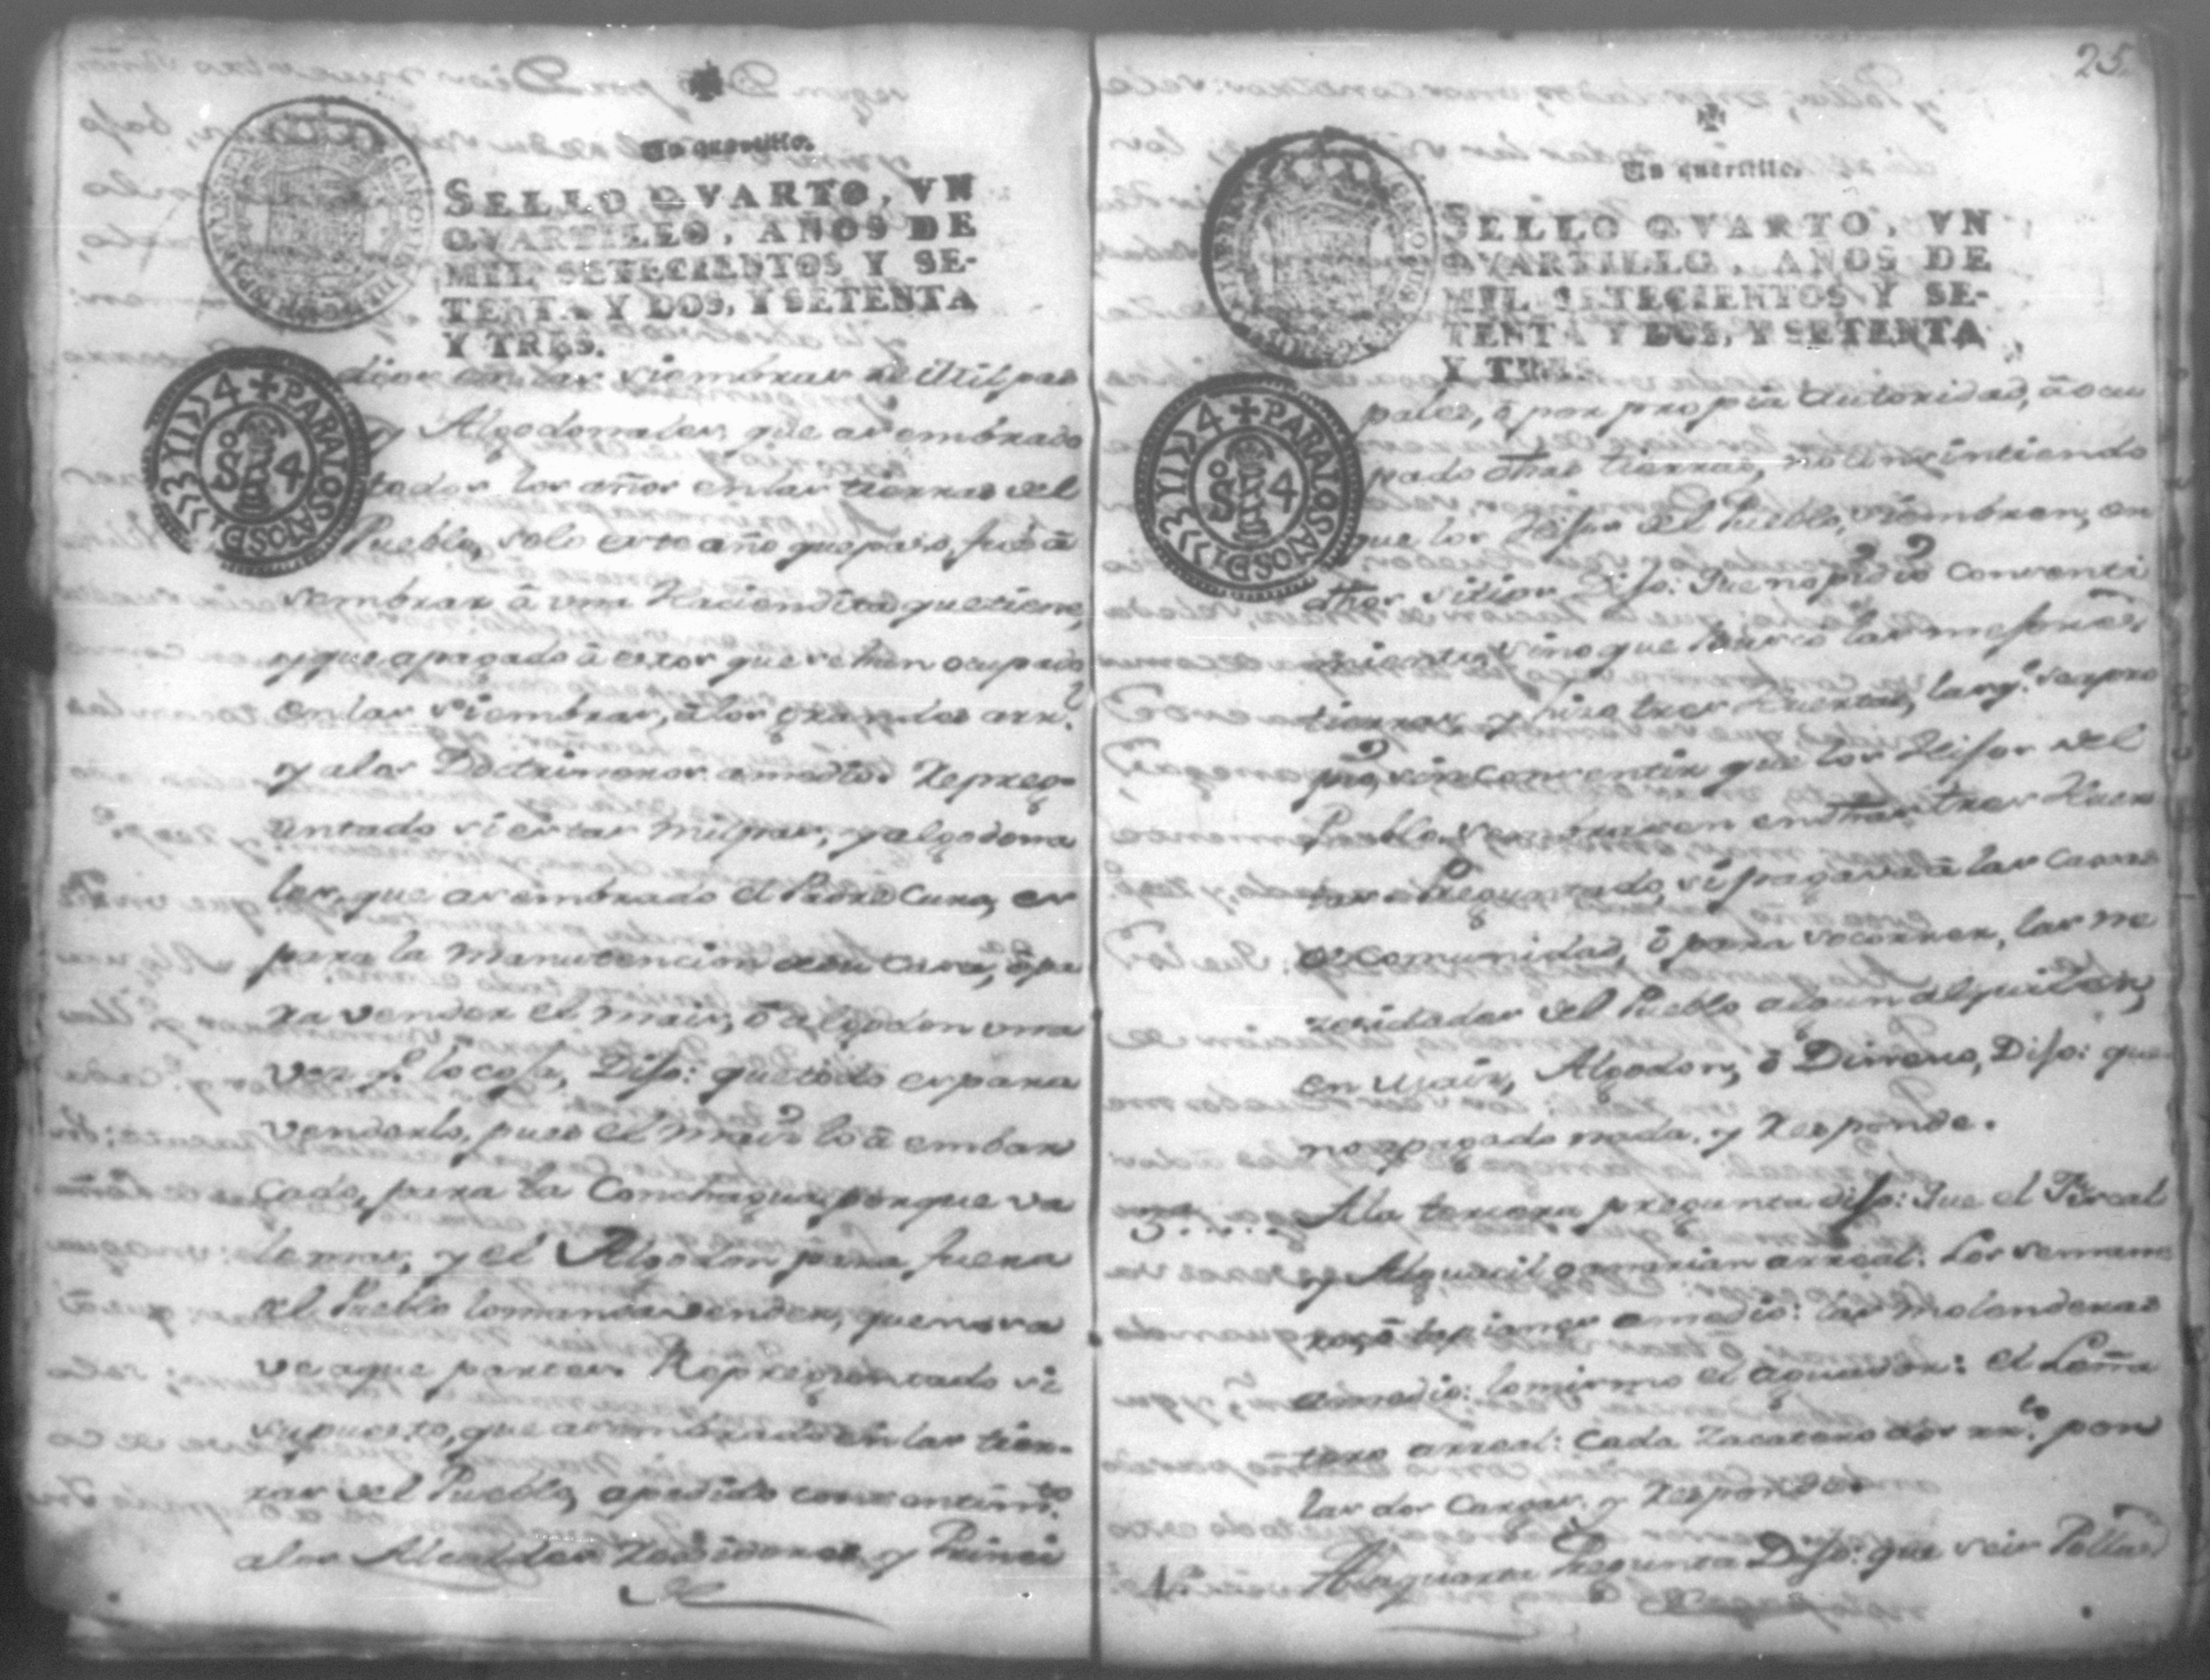 Un quartillo.
SELLO QVARTO, VN
QVARTILLO, AÑOS DE
MIL SETECIENTOS Y SE-
TENTA Y DOS, Y SETENTA
Y TRES.
PARA LOS AÑOS D 1774 Y
S.º 4
dios en las siembras de
y Algodonales, que a sembrado
todos los años en las tierras del
Pueblo, solo este año que paso, fue â
sembrar â una Haciendita que tiene,
y que a pagado â estos que se han ocupado
en las siembras, â los grandes a rr.l
y alos Doctrineros a medio. Repreg-
untado si estas milpas, y algodona
les, que a sembrado el Padre Cura, es
para la manutencion de su casa, ô pa
ra vender el mais, ô algodon una
vez q.e lo cosa, Dijo: que todo es para
venderlo, pues el mais lo â embar
cado, para la Conchagua porque va
le mas, y el Algodon para fuera
del Pueblo lo manda vender, que no sa
ve a que partes. Repreguntado si
supuesto, que a sembrado en las tier-
ras del Pueblo, a pedido consentim.to
alos Alcaldes Rexidores, y Princi
25.
Un quartillo.
SELLO QVARTO, VN
QVARTILLO, AÑOS DE
MIL SETECIENTOS Y SE-
TENTA Y DOS, Y SETENTA
Y TRES.
PARA LOS AÑOS D 1774 Y
S.º 4
pales, ô por propia autoridad, â ocu
pado dhas tierras, no consintiendo
que los Hijos del Pueblo, siembren, en
dhos sitios Dijo: Que no pidiô consenti
miento, sino que busco las mejores
tierras, y hizo tres Huertas, las q.e se apro
piô, sin consentir que los Hijos del
Pueblo sembrasen en dhas tres Huer
tas. Preguntado, si pagava â las Caxas
de comunidad, ô para socorrer, las ne
zesidades del Pueblo algun alquiler,
en Mais, Algodon, ô Dinero, Dijo: que
no a pagado nada. y Responde.
3.a Ala tercera pregunta dijo: Que el Fiscal
y Alguacil ganarian a real: Los semane
ros â topiames a medio: las Molenderas
a medio: lo mismo el aguador: el Leña
tero a real: Cada Zacatero dos rr.s por
las dos Cargas. y Responde
4. Ala quarta Pregunta Dijo: que seis Pollas